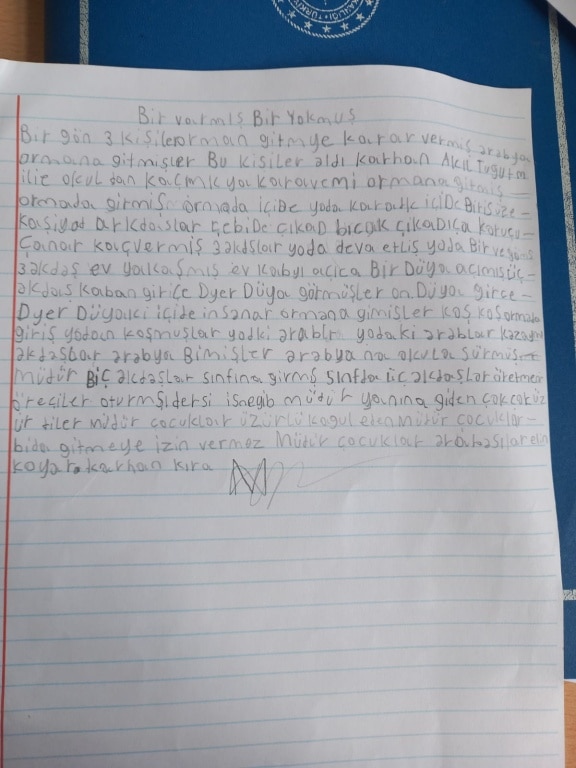 TÜRKİYE
Bir varmış Bir Yokmuş
Bir gön 3 kişilerorman gitmye karar vermiş ərəbya
ormana gitmişler Bu kisiler aldı karhan AKIL Tugurm
ilie okul dan kaçmk ya kararvemi ormana girmiş
ormada girmiş ormada içiDe yoda karatlk içiDe BitiSvze-
Kasiyat arkdaslar çebiDe çıkap bıçak çıkaDıça korucu-
Çainar kaıçvermiş 3əkdslar yoda deva etliş yoda Bir
3əkdaş ev yalkaşmış ev kabyı açica Bir Düya açımış üç-
əkdaş kaban giriçe Dyer Düya görmüşler on Düya girce-
Dyer Düyaıci içide insanar ormana gimişler koş koşormada
giriş yodan koşmuşlar yodki ərəblr yodaki ərəblar kazayma
əkdaşlar ərəbya Bimişler ərəbya na okula sürmüş
müdür BİÇ əkdəşlar sınfına girmş sınfda üç əkdəşlar öretmen
öreçiler oturmşidersi isnegib müdür yanına giden çok çoküz
ür diler müdür çocuklar üzürlü kagul eden müdür çocuklar-
bida gitmeye izin vermez Müdür çocuklar ərəbasılar elin
koyar. karhan kıra